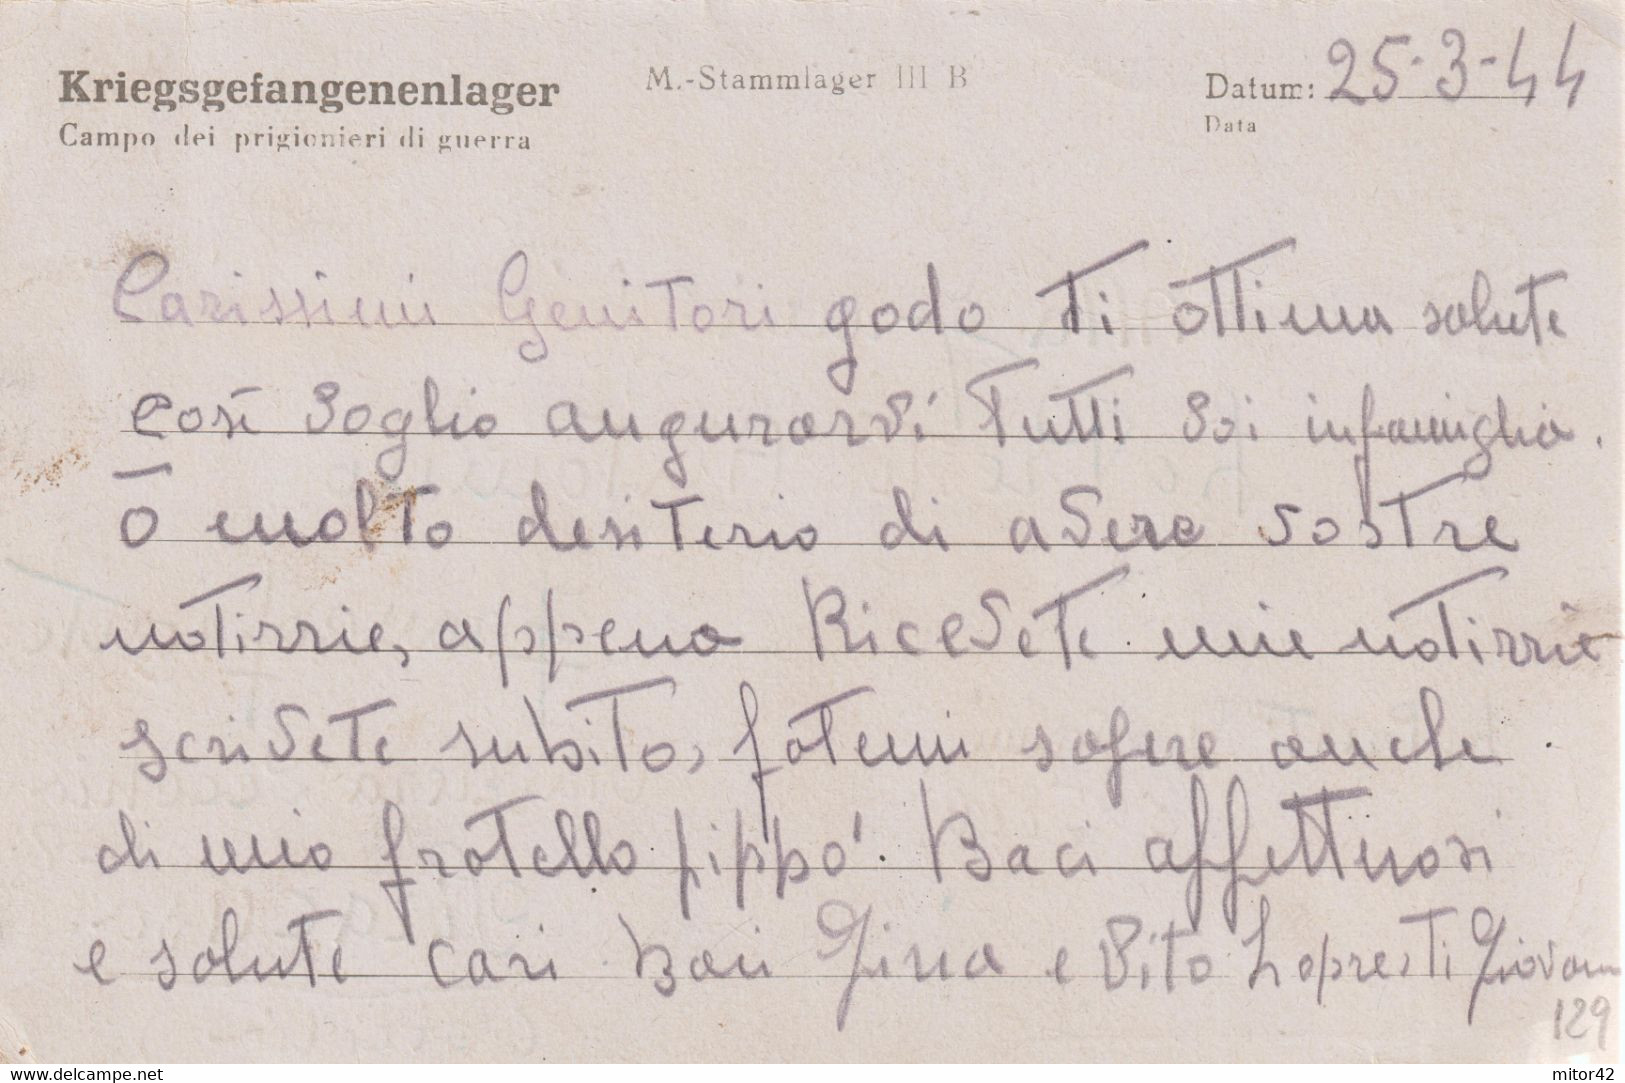 Kriegsgefangenenlager
Campo dei prigionieri di guerra
M.-Stammlager III B
Datum: 25-3-44
Data
Carissimi Genitori godo ti ottima salute
così Soglio augurarvi Tutti Voi infamiglia.
ō molto desiterio di avere vostre
notirrie, appena Ricevete mie notirrie
scrivete subito, fatemi sapere anche
di mio fratello pippo'. Baci affettuosi
e salute cari Baci Gina e Vito Lopresti Giovanni
129
delcampe.net
mitor42